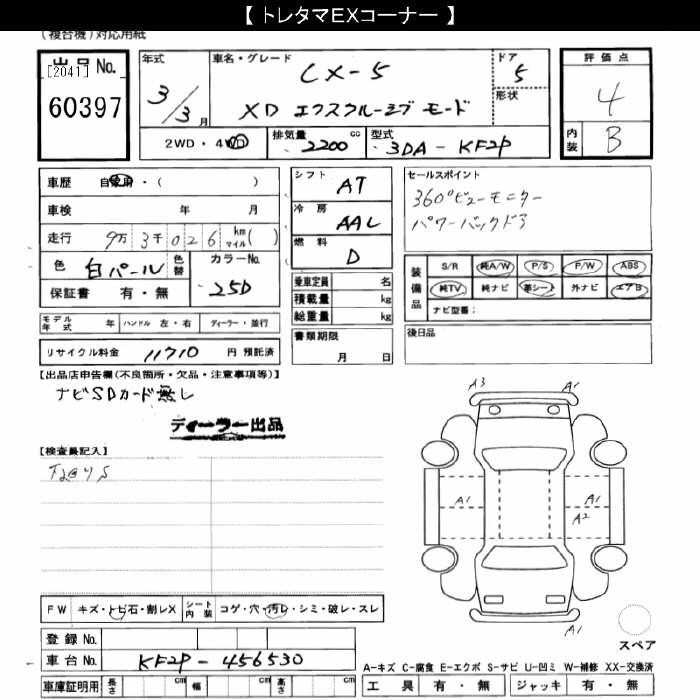 【 トレタマEXコーナー 】
(複合機)対応用紙
出品 No.
[2041]
60397
年式
3/3月
車名・グレード
CX-5
XD エクスクルーシブ モード
ドア
5
形状
評価点
4
内装
B
2WD・4WD
排気量
2200 cc
型式
3DA-KF2P
車歴 自家用・( )
車検 年 月
走行 9万 3千026 km マイル( )
色 白パール
色替
カラーNo.
25D
保証書 有・無
シフト AT
冷房 AAC
燃料 D
乗車定員 名
積載量 kg
総重量 kg
書類期限
月 日
セールスポイント
360°ビューモニター
パワーバックドア
装備品
S/R 純A/W P/S P/W ABS
純TV 純ナビ 革シート 外ナビ エアB
ナビ型番:
後日品
モデル年式 年 ハンドル 左・右 ディーラー・並行
リサイクル料金 11710 円 預託済
【出品店申告欄(不良箇所・欠品・注意事項等)】
ナビSDカード無し
ディーラー出品
【検査員記入】
A3 A1
A1 A1
A2
A1
FW キズ・トビ石・割レX シート内装 コゲ・穴・汚レ・シミ・破レ・スレ
登録 No.
車台 No. KF2P-456530
車庫証明用 長さ cm 幅 cm 高さ cm
スペア
A-キズ C-腐食 E-エクボ S-サビ U-凹ミ W-補修 XX-交換済
工具 有・無 ジャッキ 有・無